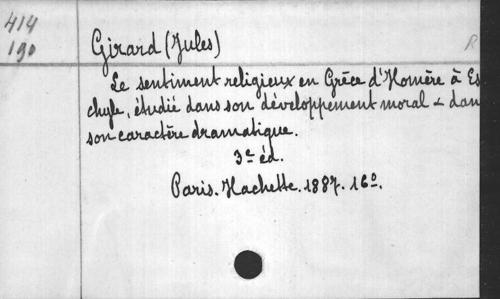 414
190
Girard (Jules)
R
Le sentiment religieux en Grèce d'Homère à Es
chyle, étudié dans son développement moral & dan
son caractère dramatique.
3e éd.
Paris. Hachette. 1887. 16º.